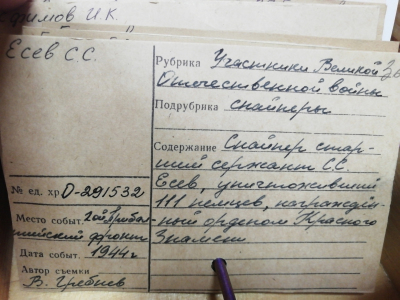 Ефимов И.К.
Есев С.С.
Рубрика Участники Великой
Отечественной войны
Подрубрика снайперы
Содержание Снайпер стар-
ший сержант С.С.
Есев, уничтоживший
111 немцев, награжден-
ный орденом Красного
Знамени
№ ед. хр. О-291532
Место событ. 2ой Прибал-
тийский фронт
Дата событ. 1944 г
Автор съемки
В. Гребнев